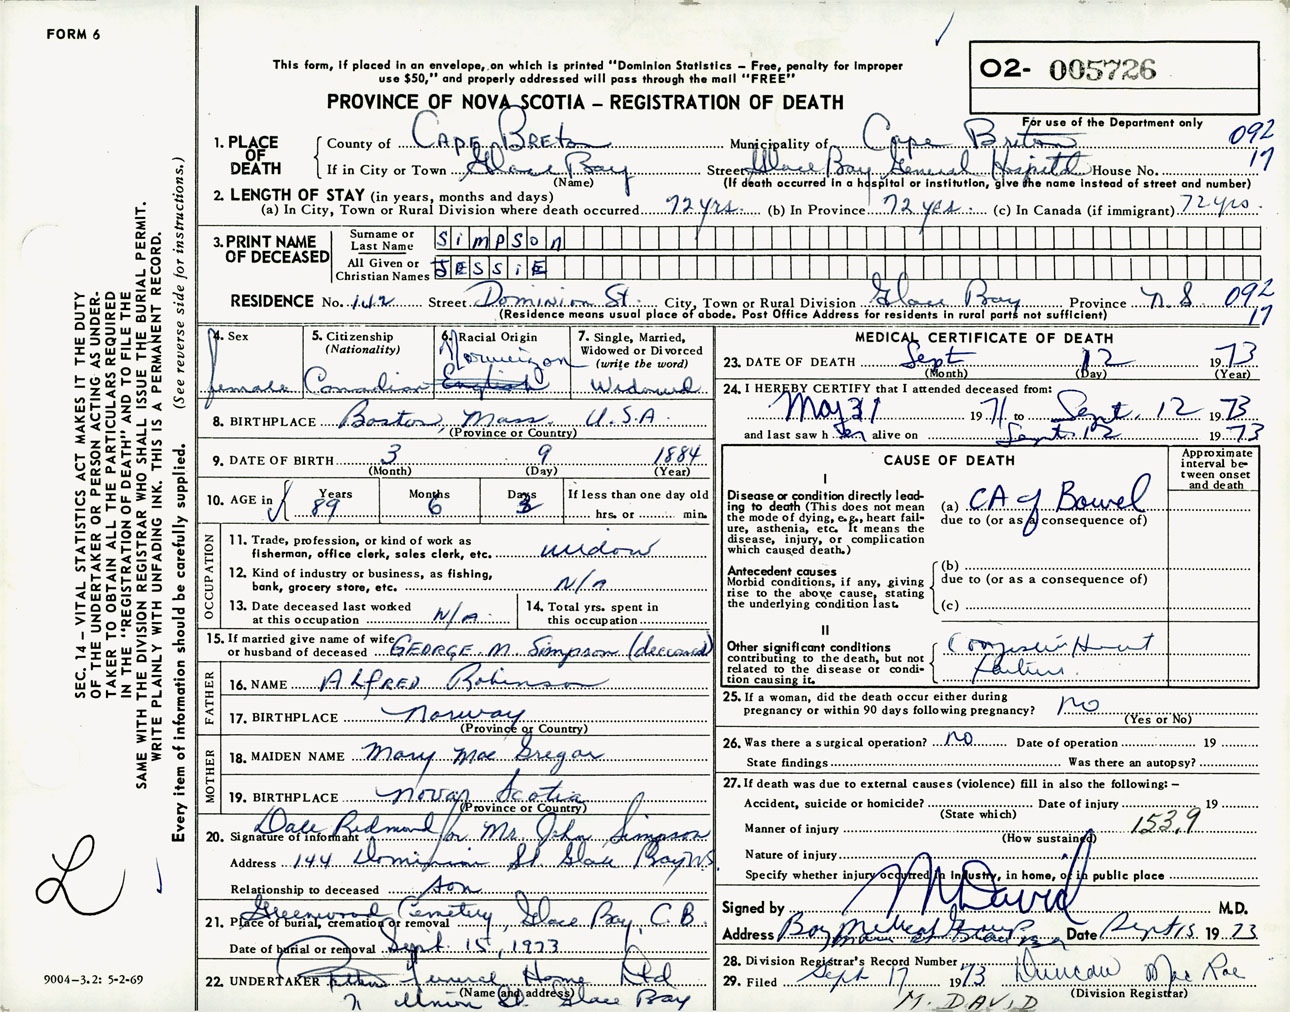 FORM 6
This form, if placed in an envelope, on which is printed "Dominion Statistics – Free, penalty for improper
use $50," and properly addressed will pass through the mail "FREE"
PROVINCE OF NOVA SCOTIA – REGISTRATION OF DEATH
O2- 005726
For use of the Department only
092
17
1. PLACE OF DEATH
County of Cape Breton Municipality of Cape Breton
If in City or Town Glace Bay Street Glace Bay General Hospital House No.
(Name) (If death occurred in a hospital or institution, give the name instead of street and number)
2. LENGTH OF STAY (in years, months and days)
(a) In City, Town or Rural Division where death occurred 72 yrs. (b) In Province 72 yrs. (c) In Canada (if immigrant) 72 yrs.
3. PRINT NAME OF DECEASED
Surname or Last Name SIMPSON
All Given or Christian Names JESSIE
RESIDENCE No. 142 Street Dominion St. City, Town or Rural Division Glace Bay Province N S 092
17
(Residence means usual place of abode. Post Office Address for residents in rural parts not sufficient)
4. Sex
female
5. Citizenship
(Nationality)
Canadian
6. Racial Origin
Norweigon
English
7. Single, Married,
Widowed or Divorced
(write the word)
Widowed
8. BIRTHPLACE Boston, Mass. U.S.A.
(Province or Country)
9. DATE OF BIRTH 3 9 1884
(Month) (Day) (Year)
10. AGE in Years 89 Months 6 Days 3
If less than one day old
hrs. or min.
OCCUPATION
11. Trade, profession, or kind of work as
fisherman, office clerk, sales clerk, etc. widow
12. Kind of industry or business, as fishing,
bank, grocery store, etc. N/A
13. Date deceased last worked
at this occupation N/A
14. Total yrs. spent in
this occupation
15. If married give name of wife
or husband of deceased GEORGE M. Simpson (deceased)
FATHER
16. NAME ALFRED Robinson
17. BIRTHPLACE Norway
(Province or Country)
MOTHER
18. MAIDEN NAME Mary Mac Gregor
19. BIRTHPLACE Nova Scotia
(Province or Country)
20. Signature of informant Dale Redmond for Mr. John Simpson
Address 144 Dominion St. Glace Bay NS
Relationship to deceased son
21. Place of burial, cremation or removal Greenwood Cemetery, Glace Bay, C.B.
Date of burial or removal Sept. 15, 1973
22. UNDERTAKER Funeral Home Ltd
(Name and address)
Union St. Glace Bay
MEDICAL CERTIFICATE OF DEATH
23. DATE OF DEATH Sept 12 1973
(Month) (Day) (Year)
24. I HEREBY CERTIFY that I attended deceased from:
May 31 1971 to Sept. 12 1973
and last saw her alive on Sept. 12 1973
CAUSE OF DEATH
Approximate
interval be-
tween onset
and death
I
Disease or condition directly lead-
ing to death (This does not mean
the mode of dying, e.g., heart fail-
ure, asthenia, etc. It means the
disease, injury, or complication
which caused death.)
(a) CA of Bowel
due to (or as a consequence of)
Antecedent causes
Morbid conditions, if any, giving
rise to the above cause, stating
the underlying condition last.
(b)
due to (or as a consequence of)
(c)
II
Other significant conditions
contributing to the death, but not
related to the disease or condi-
tion causing it.
Heart
Failure
25. If a woman, did the death occur either during
pregnancy or within 90 days following pregnancy? no
(Yes or No)
26. Was there a surgical operation? no Date of operation 19
State findings Was there an autopsy?
27. If death was due to external causes (violence) fill in also the following: –
Accident, suicide or homicide? Date of injury 19
(State which)
Manner of injury 153.9
(How sustained)
Nature of injury
Specify whether injury occurred in industry, in home, or in public place
Signed by M David M.D.
Address Bay Medical Group Date Sept 15 1973
28. Division Registrar's Record Number
29. Filed Sept 17 1973 Duncan Mac Rae
(Division Registrar)
M. DAVID
SEC. 14 – VITAL STATISTICS ACT MAKES IT THE DUTY
OF THE UNDERTAKER OR PERSON ACTING AS UNDER-
TAKER TO OBTAIN ALL THE PARTICULARS REQUIRED
IN THE "REGISTRATION OF DEATH" AND TO FILE THE
SAME WITH THE DIVISION REGISTRAR WHO SHALL ISSUE THE BURIAL PERMIT.
WRITE PLAINLY WITH UNFADING INK. THIS IS A PERMANENT RECORD.
Every item of information should be carefully supplied. (See reverse side for instructions.)
9004–3.2: 5-2-69